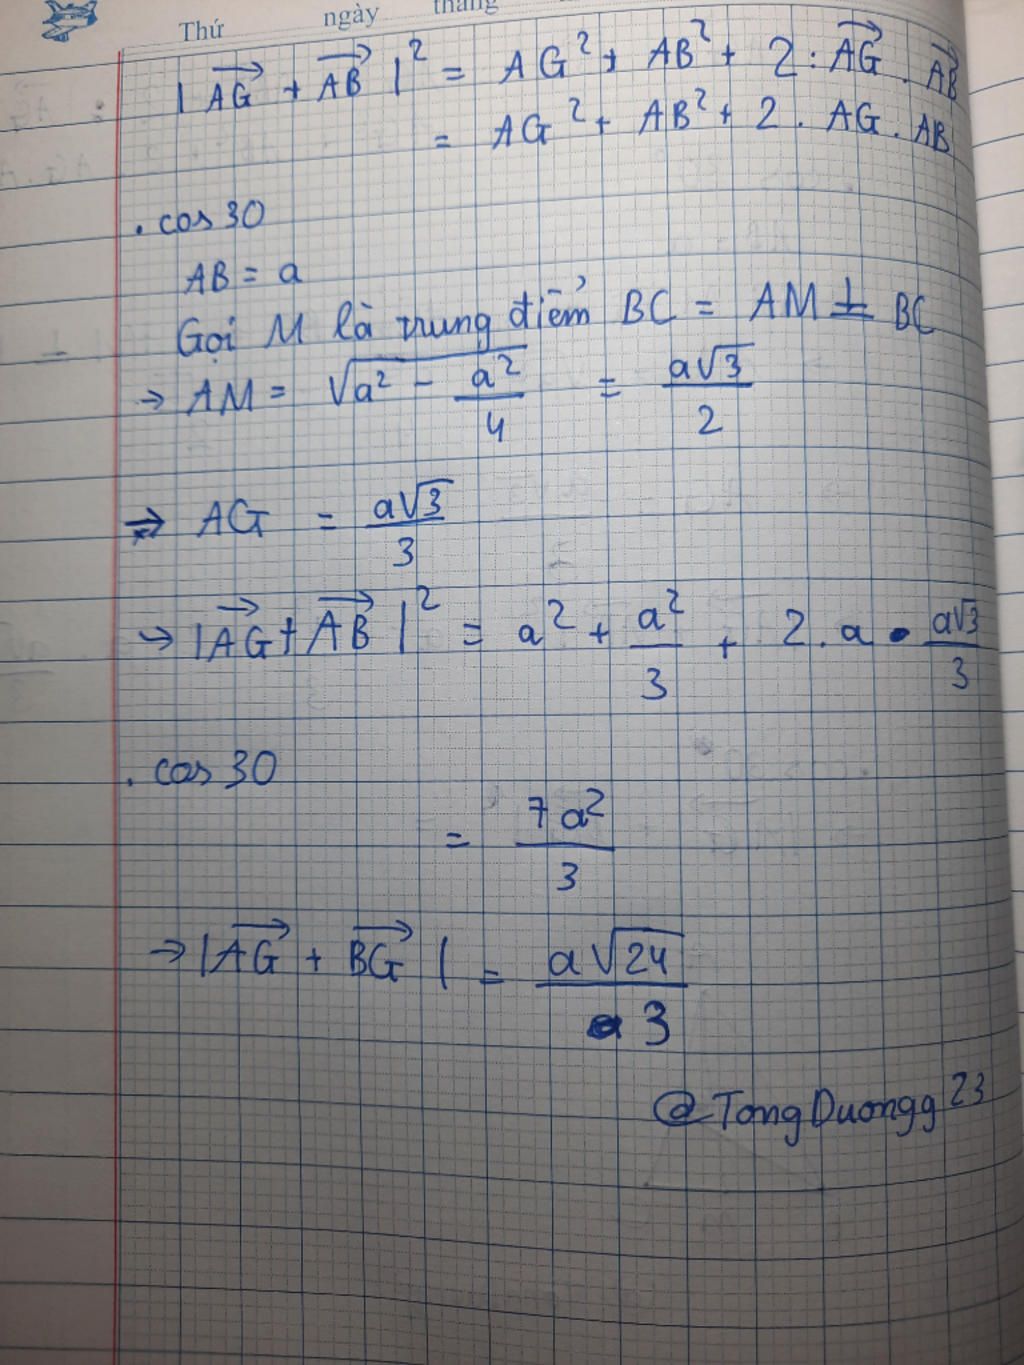 Thứ ngày tháng
|AG→ + AB→|² = AG² + AB² + 2 . AG→ . AB→
= AG² + AB² + 2 . AG . AB
. cos 30
AB = a
Gọi M là trung điểm BC = AM ⊥ BC
→ AM = √(a² - a²/4) = a√3/2
⇒ AG = a√3/3
→ |AG→ + AB→|² = a² + a²/3 + 2 . a . a√3/3
. cos 30
= 7a²/3
→ |AG→ + BG→| = a√24/3
@TongDuongg23